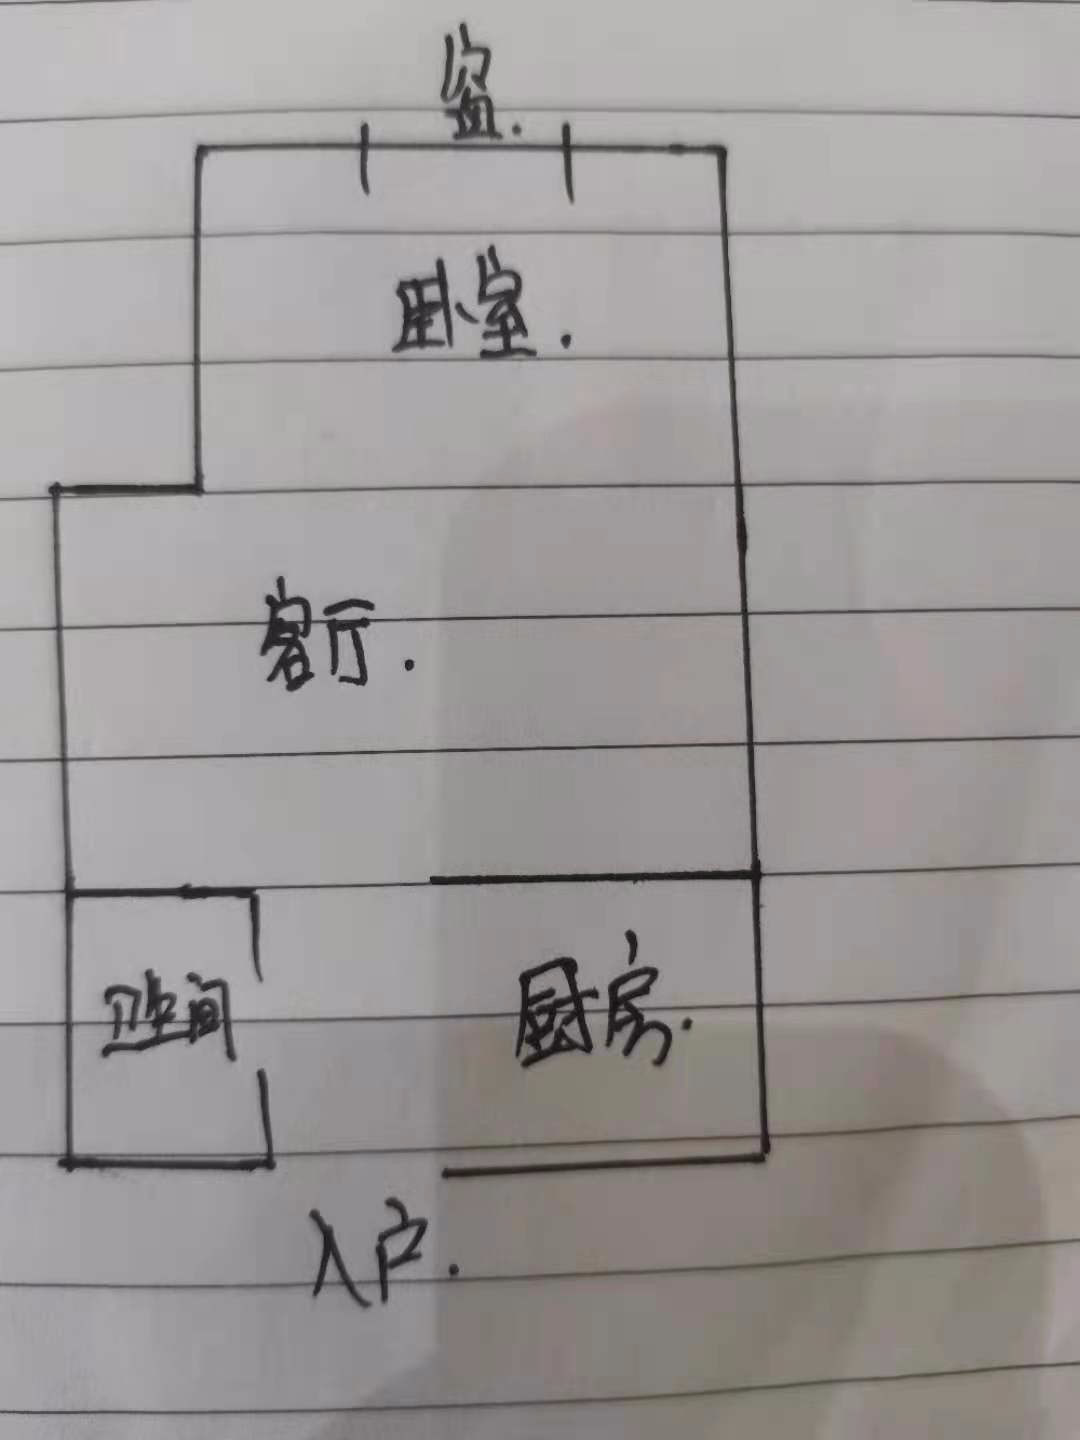 窗.
卧室.
客厅.
卫生间
厨房.
入户.